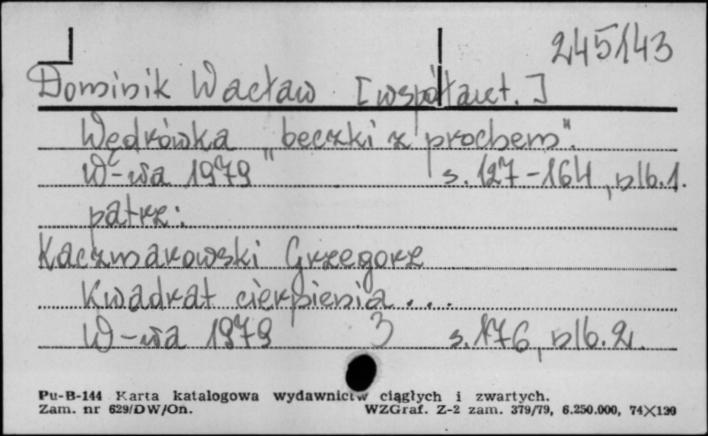 245143
Dominik Wacław [współaut.]
Wędrówka "beczki z prochem".
W-wa 1979 s. 127-164, nlb. 1.
patrz:
Kaczmarowski Grzegorz
Kwadrat cierpienia...
W-wa 1979 3 s. 176, nlb. 2.
Pu-B-144 Karta katalogowa wydawnictw ciągłych i zwartych.
Zam. nr 629/DW/On. WZGraf. Z-2 zam. 379/79, 6.250.000, 74×120